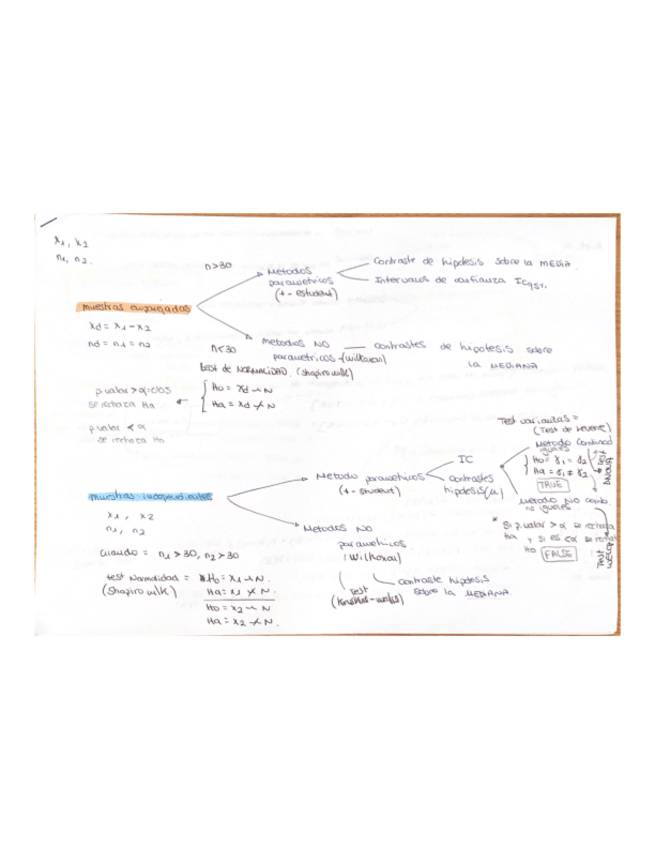 x1, x2
n1, n2.
n>30
Metodos
parametricos
(t-estudent)
Contraste de hipotesis sobre la MEDIA.
Intervalos de confianza IC95%.
muestras emparejadas
xd = x1 - x2
nd = n1 = n2
n<30
metodos NO
parametricos - (wilkoxon)
contrastes de hipotesis sobre
la MEDIANA.
test de NORMALIDAD. (shapiro wilk)
Ho = xd ~ N
Ha = xd ≁ N
p valor > α
se rechaza Ha
p valor < α
se rechaza Ho
muestras independientes
x1, x2
n1, n2
Cuando = n1 > 30, n2 > 30
test Normalidad =
(Shapiro wilk)
Ho = x1 ~ N.
Ha = x1 ≁ N.
Ho = x2 ~ N
Ha = x2 ≁ N.
Metodo parametricos
(t-student)
IC
contrastes
hipotesis (μ)
Test varianzas =
(Test de levene)
Metodo Combinad
iguales
TRUE
Test
ANOVA
metodo NO comb
no iguales
* Si p.valor > α se rechaza
Ha y si es <α se rechaz
Ho FALSE
Test
WELCH
Metodos NO
parametricos
(Wilkoxon)
Test
contraste hipotesis
sobre la MEDIANA